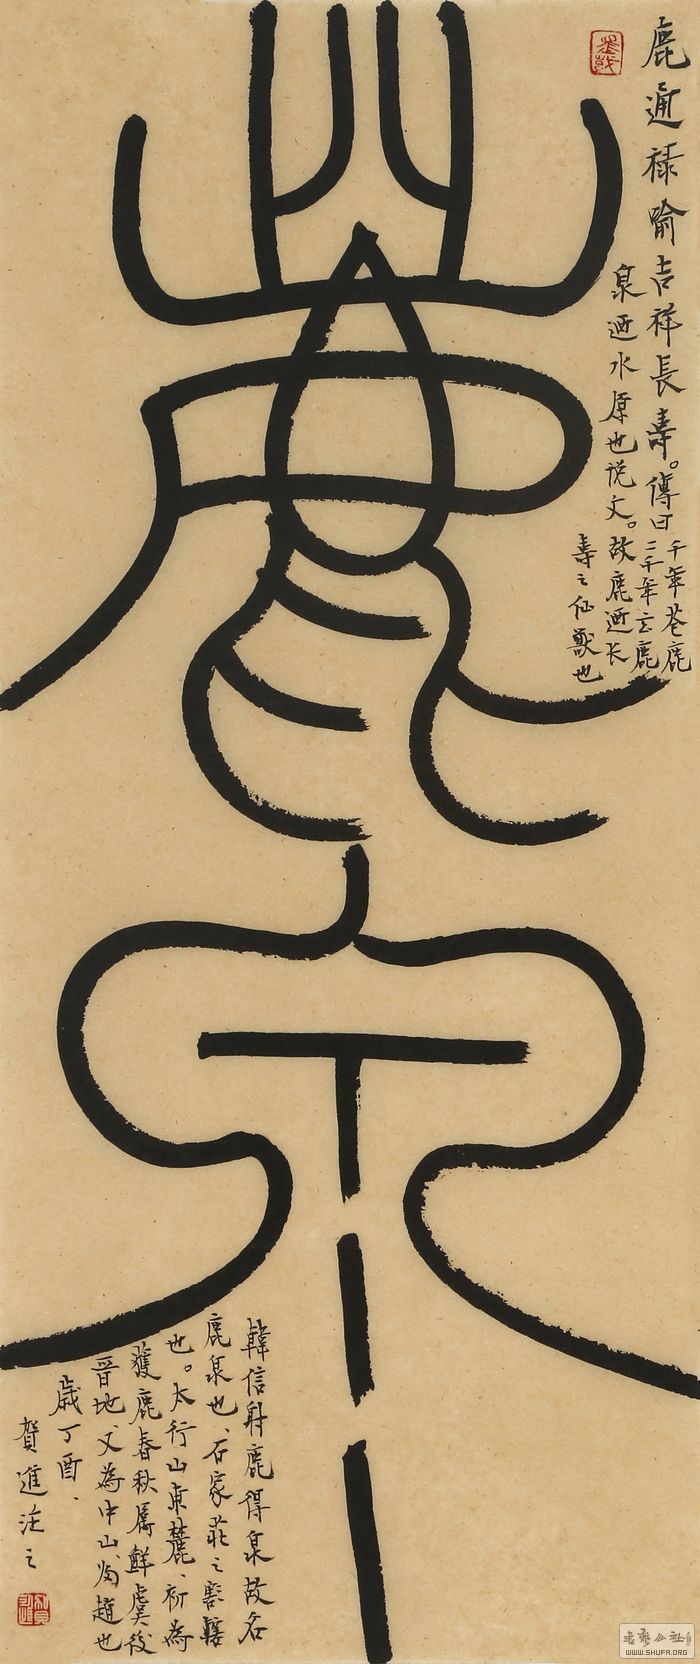 鹿泉
鹿通禄喻吉祥長壽。傳曰
千年苍鹿
二千年玄鹿
泉迺水原也说文。故鹿迺长
壽之仙獸也
韓信射鹿得泉故名
鹿泉也、石家莊之
也。太行山東麓、祈為
獲鹿春秋屬鮮虞後
晉地、又為中山 趙也
歲丁酉、
賀進注之
书法公社
WWW.SHUFA.ORG